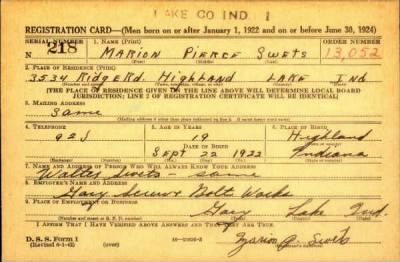 LAKE CO IND. 1
REGISTRATION CARD—(Men born on or after January 1, 1922 and on or before June 30, 1924)
SERIAL NUMBER 1. NAME (Print) ORDER NUMBER
N 218 MARION PIERCE SWETS 13,052
(First) (Middle) (Last)
2. PLACE OF RESIDENCE (Print)
3534 Ridge Rd. Highland LAKE Ind
[THE PLACE OF RESIDENCE GIVEN ON THE LINE ABOVE WILL DETERMINE LOCAL BOARD
JURISDICTION; LINE 2 OF REGISTRATION CERTIFICATE WILL BE IDENTICAL]
3. MAILING ADDRESS
Same
4. TELEPHONE 5. AGE IN YEARS 6. PLACE OF BIRTH
19 Highland
DATE OF BIRTH
Sept 22 1922 Indiana
7. NAME AND ADDRESS OF PERSON WHO WILL ALWAYS KNOW YOUR ADDRESS
Walter Swets - same
8. EMPLOYER'S NAME AND ADDRESS
Gary Screw Bolt Works
9. PLACE OF EMPLOYMENT OR BUSINESS
Gary Lake Ind.
I AFFIRM THAT I HAVE VERIFIED ABOVE ANSWERS AND THAT THEY ARE TRUE.
D. S. S. Form 1 Marion P. Swets